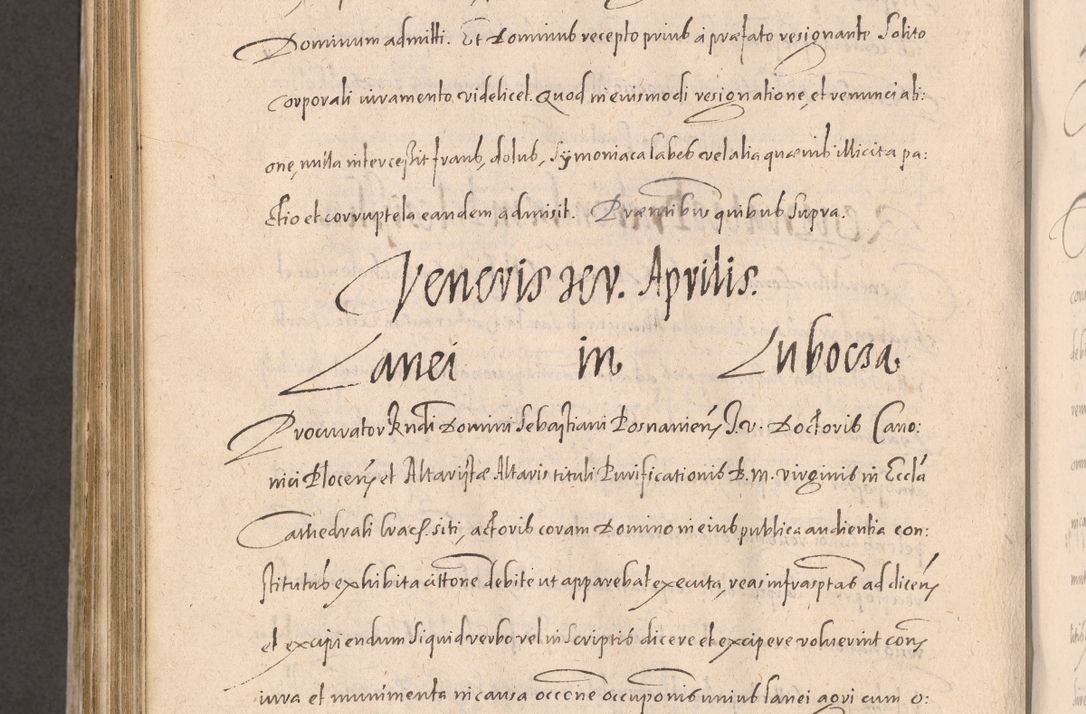 Dominum admitti. Et Dominus recepto prius à præfato resignante Solito
corporali iuramento videlicet. Quod in eiusmodi resignatione, et renunciati:
one, nulla intercessit fraus, dolus, Symoniaca labes vel alia quævis illicita pa:
ctio et corruptela eandem admisit. Præsentibus quibus supra.
Veneris xxv. Aprilis.
Lanei in Lubocza
Procurator Rndi Domini Sebastiani Posnanien J. v. Doctoris Cano:
nici Plocen et Altaristæ Altaris tituli Purificationis B. m. virginis in Eccla
Cathedrali Crac. siti, actoris coram Domino in eius publica audientia con:
stitutus exhibita cittone debite ut apparebat executa, reas infrasptas ad dicen
et excipiendum Siquid verbo vel in scriptis dicere et excipere voluerint con
iura et munimenta in causa occone occuponis unius lanei agri cum o: